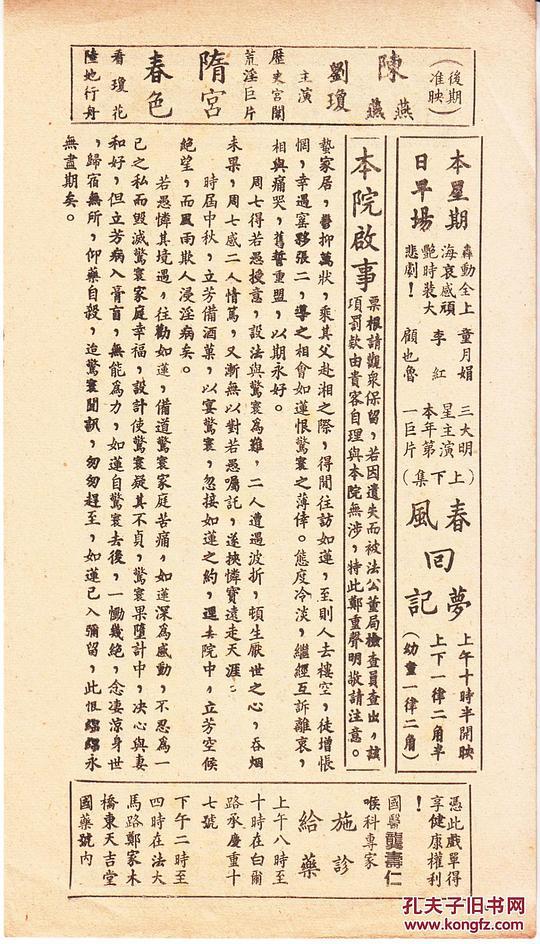 （後期准映）
陳燕燕
劉瓊
主演
歷史宮闈
荒淫巨片
隋宮
春色
看瓊花
陸地行舟
本星期
日早場
轟動全上
海哀感頑
艷時裝大
悲劇！
童月娟
李紅
顧也魯
三大明
星主演
本年第
一巨片
（上下集）
春風回夢記
上午十時半開映
上下一律二角半
（幼童一律二角）
本院啟事
票根請觀衆保留，若因遺失而被法公董局檢查員查出，該
項罰欵由貴客自理與本院無涉，特此鄭重聲明敬請注意。
藝家居，鬱抑萬狀，乘其父赴湘之際，得間往訪如蓮，至則人去樓空，徒增悵
惘，幸遇窰夥張二，導之相會如蓮恨驚寰之薄倖。態度冷淡，繼經互訴離衷，
相與痛哭，舊誓重盟，以期永好。
周七得若愚授意，設法與驚寰為難，二人遭遇波折，頓生厭世之心，吞烟
未果，周七感二人情篤，又漸無以對若愚囑託，遂挾憐寶遠走天涯：
時屆中秋，立芳備酒菓，以宴驚寰，忽接如蓮之約，逕去院中，立芳空候
絕望，而風雨欺人浸淫病矣。
若愚憐其境遇，往勸如蓮，備道驚寰家庭苦痛，如蓮深為感動，不忍為一
已之私而毀滅驚寰家庭幸福，設計使驚寰疑其不貞，驚寰果墮計中，决心與妻
和好，但立芳病入膏肓，無能為力，如蓮自驚寰去後，一慟幾絕，念凄涼身世
，歸宿無所，仰藥自殺，迨驚寰聞訊，匆匆趕至，如蓮已入彌留，此恨綿綿永
無盡期矣。
憑此戲單得
享健康權利
！
國醫龔壽仁
喉科專家
施診
給藥
上午八時至
十時在白爾
路承慶重十
七號
下午二時至
四時在法大
馬路鄭家木
橋東天吉堂
國藥號內
孔夫子旧书网
www.kongfz.com